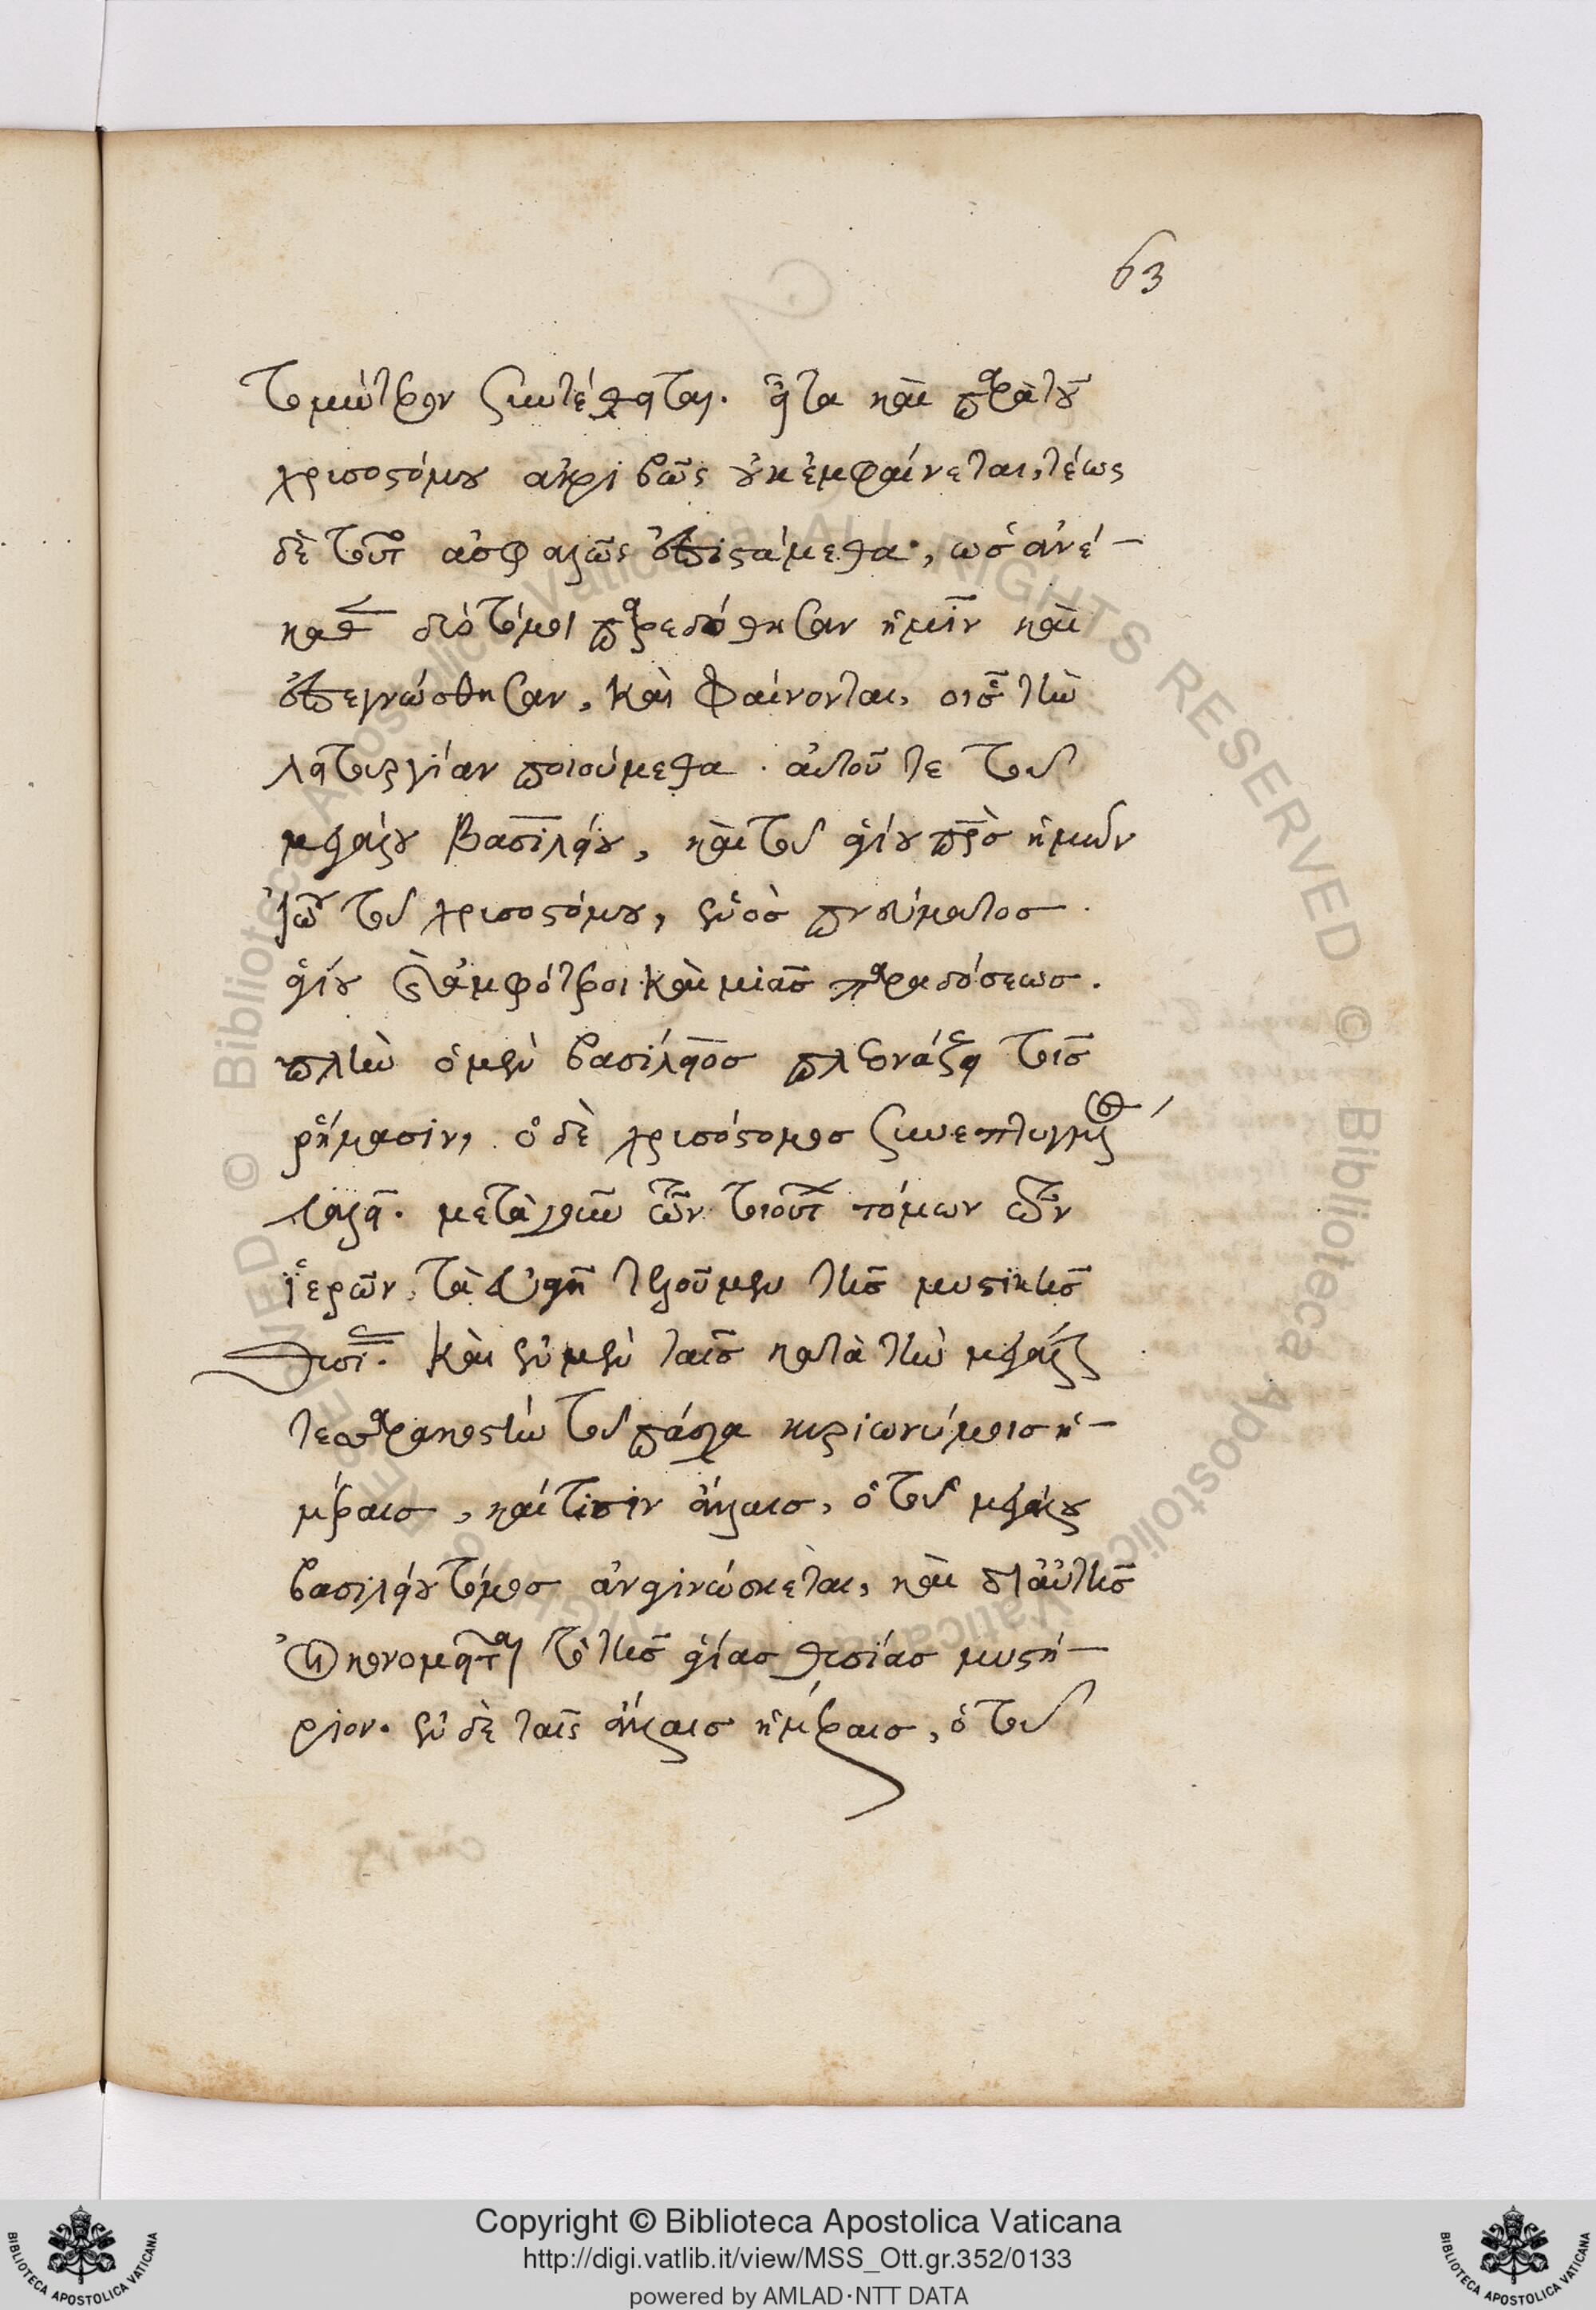 63
τομώτερον συντέθειται. εἶτα καὶ παρὰ τοῦ
χρυσοστόμου ἀκριβῶς οὐκ ἐμφαίνεται, τέως
δὲ τοῦτο ἀσφαλῶς ἐπιστάμεθα, ὡς ἀνέ-
καθεν δύο τόμοι παρεδόθησαν ἡμῖν καὶ
ἐπεγνώσθησαν, καὶ φαίνονται, οἷς τὴν
λειτουργίαν ποιούμεθα. αὐτοῦ τε τοῦ
μεγάλου Βασιλείου, καὶ τοῦ ἁγίου πατρὸς ἡμῶν
ἰωάννου τοῦ χρυσοστόμου, ἑνὸς πνεύματος
ἁγίου ἀμφότεροι καὶ μιᾶς παραδόσεως.
πλὴν ὁ μὲν βασίλειος πλεονάζει τοῖς
ῥήμασιν, ὁ δὲ χρυσόστομος συνεπτυγμένως
λαλεῖ. μετὰ γοῦν τῶν τοιούτων τόμων τῶν
ἱερῶν, τὰ εὐχῆς τελοῦμεν τῆς μυστικῆς
θυσίας. καὶ ἐν μὲν ταῖς κατὰ τὴν μεγάλην
τεσσαρακοστὴν τοῦ πάσχα κυριωνύμοις ἡ-
μέραις, καί τισιν ἄλλαις, ὁ τοῦ μεγάλου
βασιλείου τόμος ἀναγινώσκεται, καὶ δι' αὐτῆς
οἰκονομεῖται τὸ τῆς ἁγίας θυσίας μυστή-
ριον. ἐν δὲ ταῖς ἄλλαις ἡμέραις, ὁ τοῦ
Copyright © Biblioteca Apostolica Vaticana
http://digi.vatlib.it/view/MSS_Ott.gr.352/0133
powered by AMLAD·NTT DATA